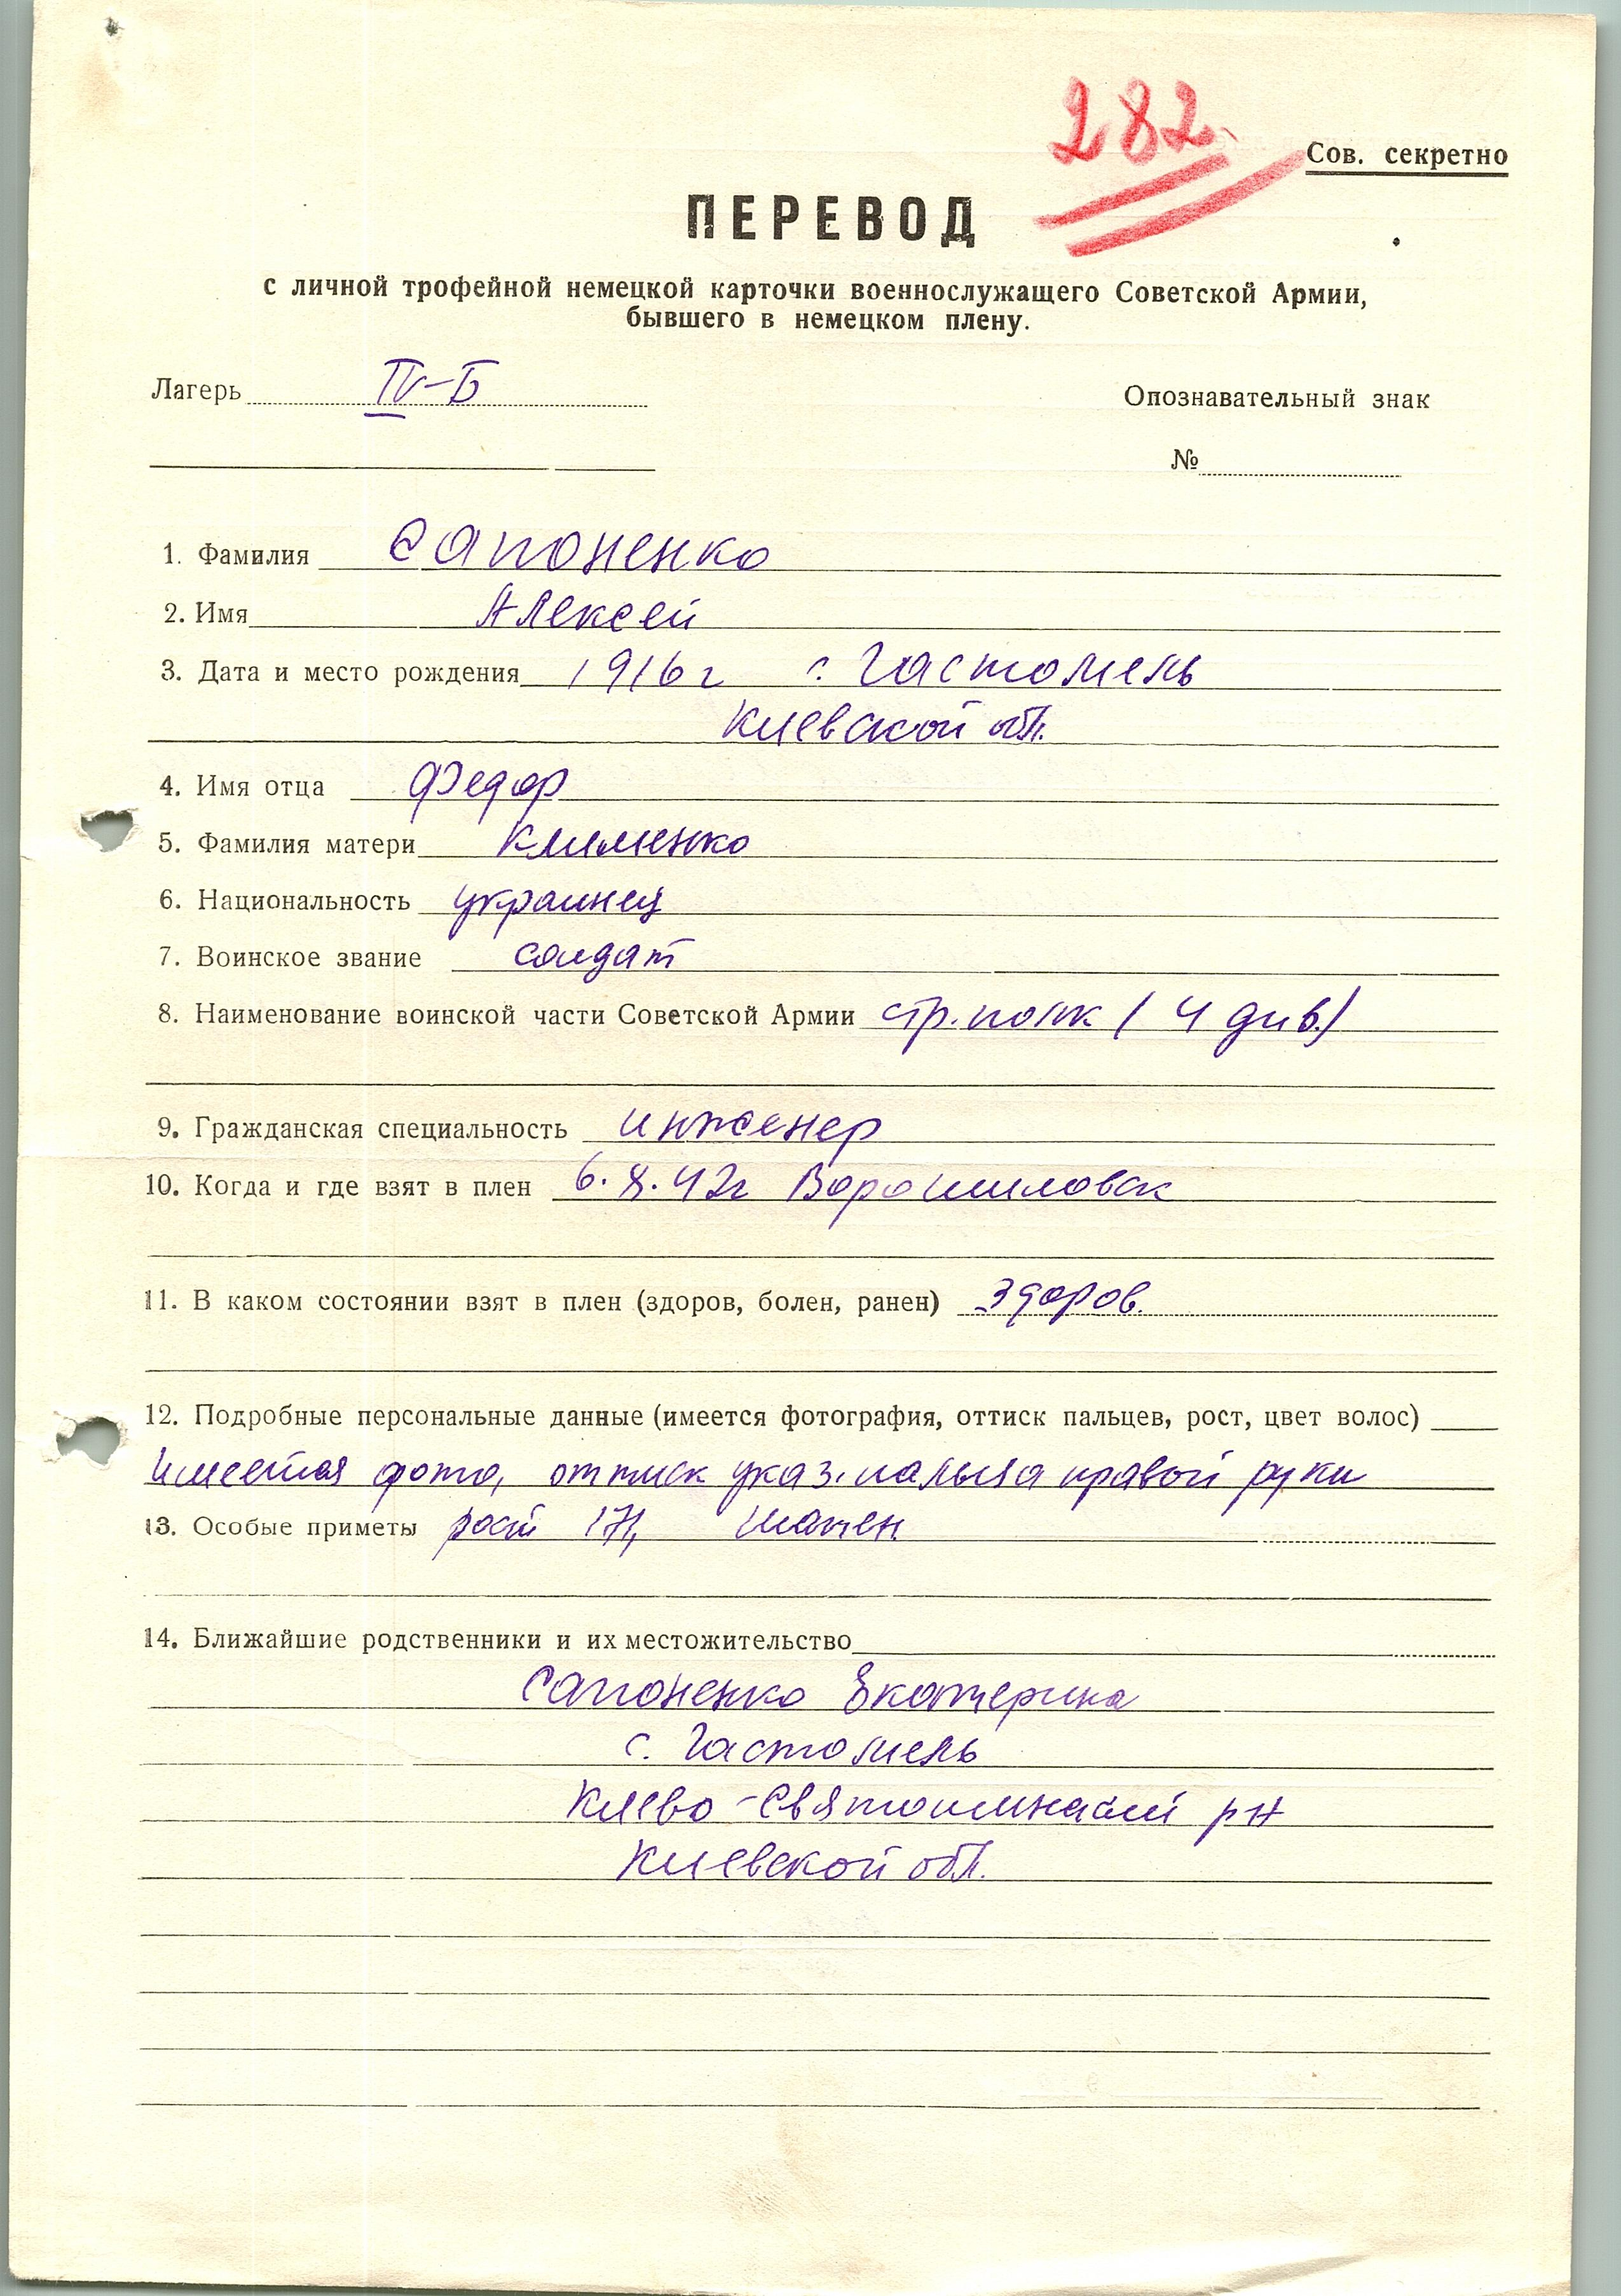 282.
Сов. секретно
ПЕРЕВОД
с личной трофейной немецкой карточки военнослужащего Советской Армии,
бывшего в немецком плену.
Лагерь IV-Б
Опознавательный знак
№
1. Фамилия Сапоненко
2. Имя Алексей
3. Дата и место рождения 1916 г с. Гастомель
Киевской обл.
4. Имя отца Федор
5. Фамилия матери Клименко
6. Национальность украинец
7. Воинское звание солдат
8. Наименование воинской части Советской Армии стр. полк (4 див.)
9. Гражданская специальность инженер
10. Когда и где взят в плен 6.8.42г Ворошиловск
11. В каком состоянии взят в плен (здоров, болен, ранен) здоров.
12. Подробные персональные данные (имеется фотография, оттиск пальцев, рост, цвет волос)
имеется фото, оттиск указ. пальца правой руки
13. Особые приметы рост 171, шатен.
14. Ближайшие родственники и их местожительство
Сапоненко Екатерина
с. Гастомель
Киево-Святошинский р-н
Киевской обл.